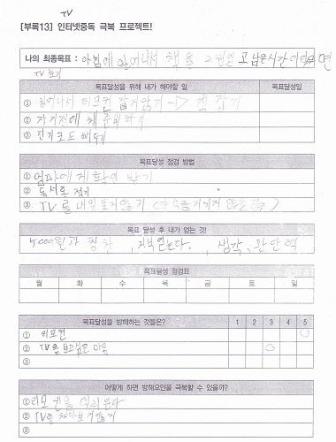 TV
[부록13] 인터넷중독 극복 프로젝트!
나의 최종목표 : 아침에 일어나서 책을 2권읽고 남은시간이 있으면
TV 보기
목표달성을 위해 내가 해야할 일 목표달성일
① 일어나서 리모컨 잡지않기 -> 책 잡기
② 자기전에 책 준비하기
③ 전기코드 빼놓기
목표달성 점검 방법
① 엄마에게 확인 받기
② 독서록 적기
③ TV를 내일 보지않기
목표 달성 후 내가 얻는 것!
칭찬, 지식얻는다., 생각, 판단력
목표달성 점검표
월 화 수 목 금 토 일
목표달성을 방해하는 것들은? 1 2 3 4 5
① 리모컨
② TV를 보고싶은 마음
③
어떻게 하면 방해요인을 극복할 수 있을까?
① 리모컨을 숨긴다
② TV를
③